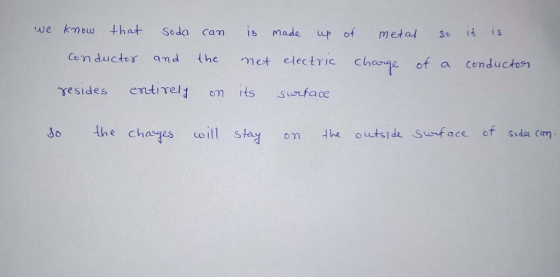 we know that soda can is made up of metal so it is
conductor and the net electric charge of a conductor
resides entirely on its surface
so the charges will stay on the outside surface of soda can.